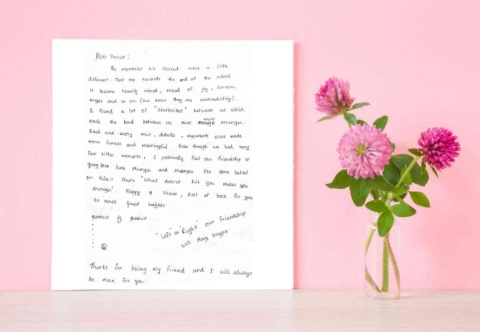 Dear
The memories we shared were a little
different. that too towards the end of the school
it became heavily mixed, mixed of joy, sorrow,
anger and so on (we know they are contradicting)
I found a lot of "similarities" between us which
made the bond between us even more stronger.
Each and every news, debate, argument were made
more funnier and meaningful. Even though we had very
few little moments, I personally feel our friendship is
going to stronger and stronger like some belief
"What doesn't kill you makes you
stronger". Happy of Best of luck for you
to reach great heights
of
"Left" or "Right" our friendship
will stay bright
Thanks for being my friend and I will always
be there for you